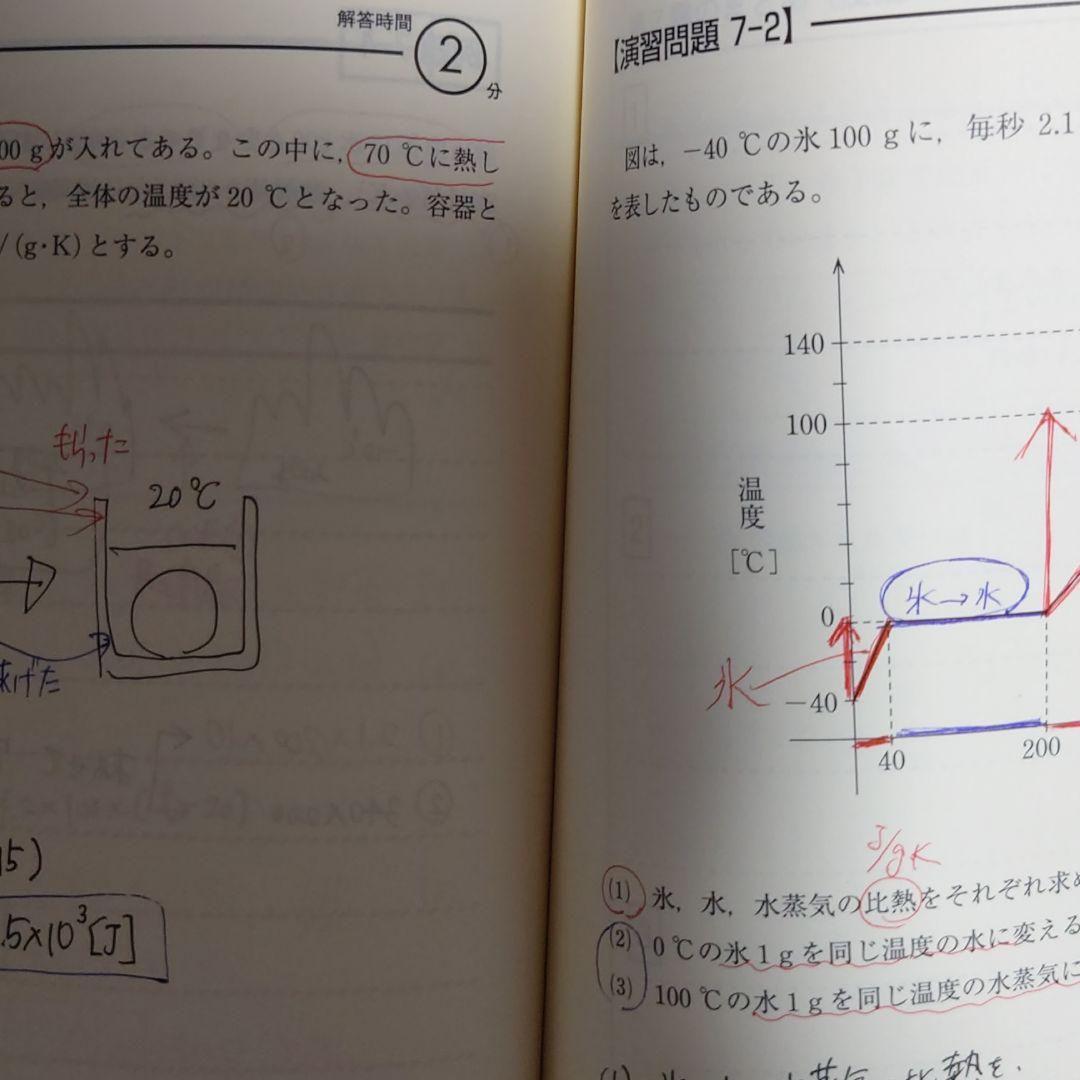 解答時間
2
分
00 gが入れてある。この中に，70 ℃に熱し
ると，全体の温度が 20 ℃となった。容器と
/(g·K)とする。
もらった
20℃
15)
.5×10³[J]
【演習問題 7-2】
図は，−40 ℃の氷 100 g に，毎秒 2.1
を表したものである。
140
100
温度
[℃]
氷→水
0
氷
−40
40
200
J/gK
(1) 氷，水，水蒸気の比熱をそれぞれ求め
(2) 0 ℃の氷 1 g を同じ温度の水に変える
(3) 100 ℃の水 1 g を同じ温度の水蒸気に